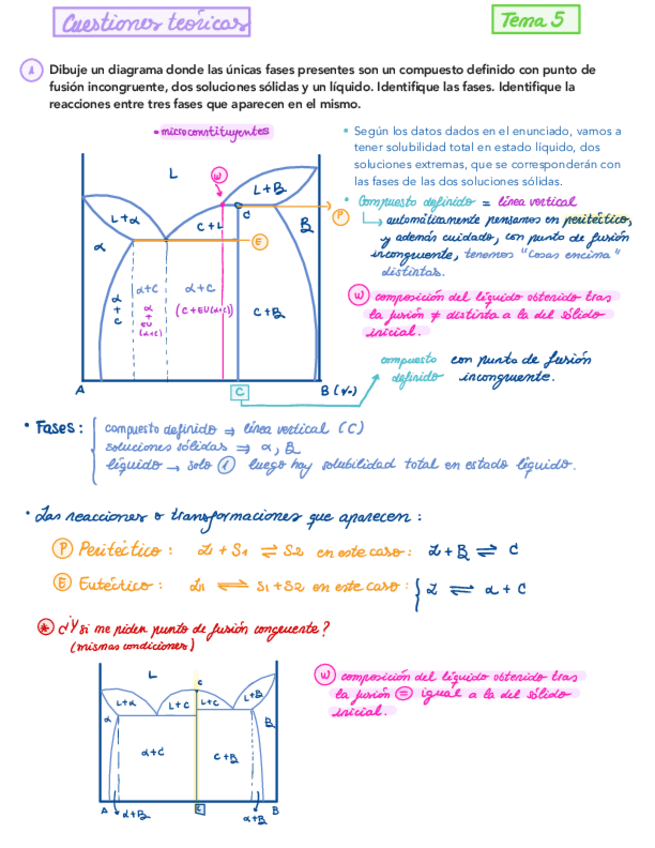 Cuestiones teóricas
Tema 5
1 Dibuje un diagrama donde las únicas fases presentes son un compuesto definido con punto de
fusión incongruente, dos soluciones sólidas y un líquido. Identifique las fases. Identifique la
reacciones entre tres fases que aparecen en el mismo.
• microconstituyentes
L
W
L+B
L+α
C+L
C
P
B
α
E
α+C
α+C
α
+
C
α
+
EU
(α+C)
(C+EU(α+C))
C+B
A
C
B (%)
• Según los datos dados en el enunciado, vamos a
tener solubilidad total en estado líquido, dos
soluciones extremas, que se corresponderán con
las fases de las dos soluciones sólidas.
• Compuesto definido = línea vertical
↳ automáticamente pensamos en peritéctico,
y además cuidado, con punto de fusión
incongruente, tenemos "cosas encima"
distintas.
W composición del líquido obtenido tras
la fusión ≠ distinta a la del sólido
inicial.
compuesto definido con punto de fusión incongruente.
• Fases:
compuesto definido ⇒ línea vertical (C)
soluciones sólidas ⇒ α, B
líquido → solo 1 luego hay solubilidad total en estado líquido.
• Las reacciones o transformaciones que aparecen:
P Peritéctico: L1 + S1 ⇌ S2 en este caso: L+B ⇌ C
E Eutéctico: L1 ⇌ S1+S2 en este caso: { L ⇌ α + C
* ¿Y si me piden punto de fusión congruente?
(mismas condiciones)
L
C
L+α
L+C
L+C
L+B
α
B
α+C
C+B
A
α+B
C
α+B
B
W composición del líquido obtenido tras
la fusión = igual a la del sólido
inicial.